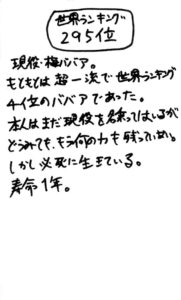 世界ランキング
295位
現役・梅ババア。
もともとは超一流で世界ランキング
4位のババアであった。
本人はまだ現役を名乗ってはいるが
どうみても、もう何の力も残っていない。
しかし必死に生きている。
寿命1年。